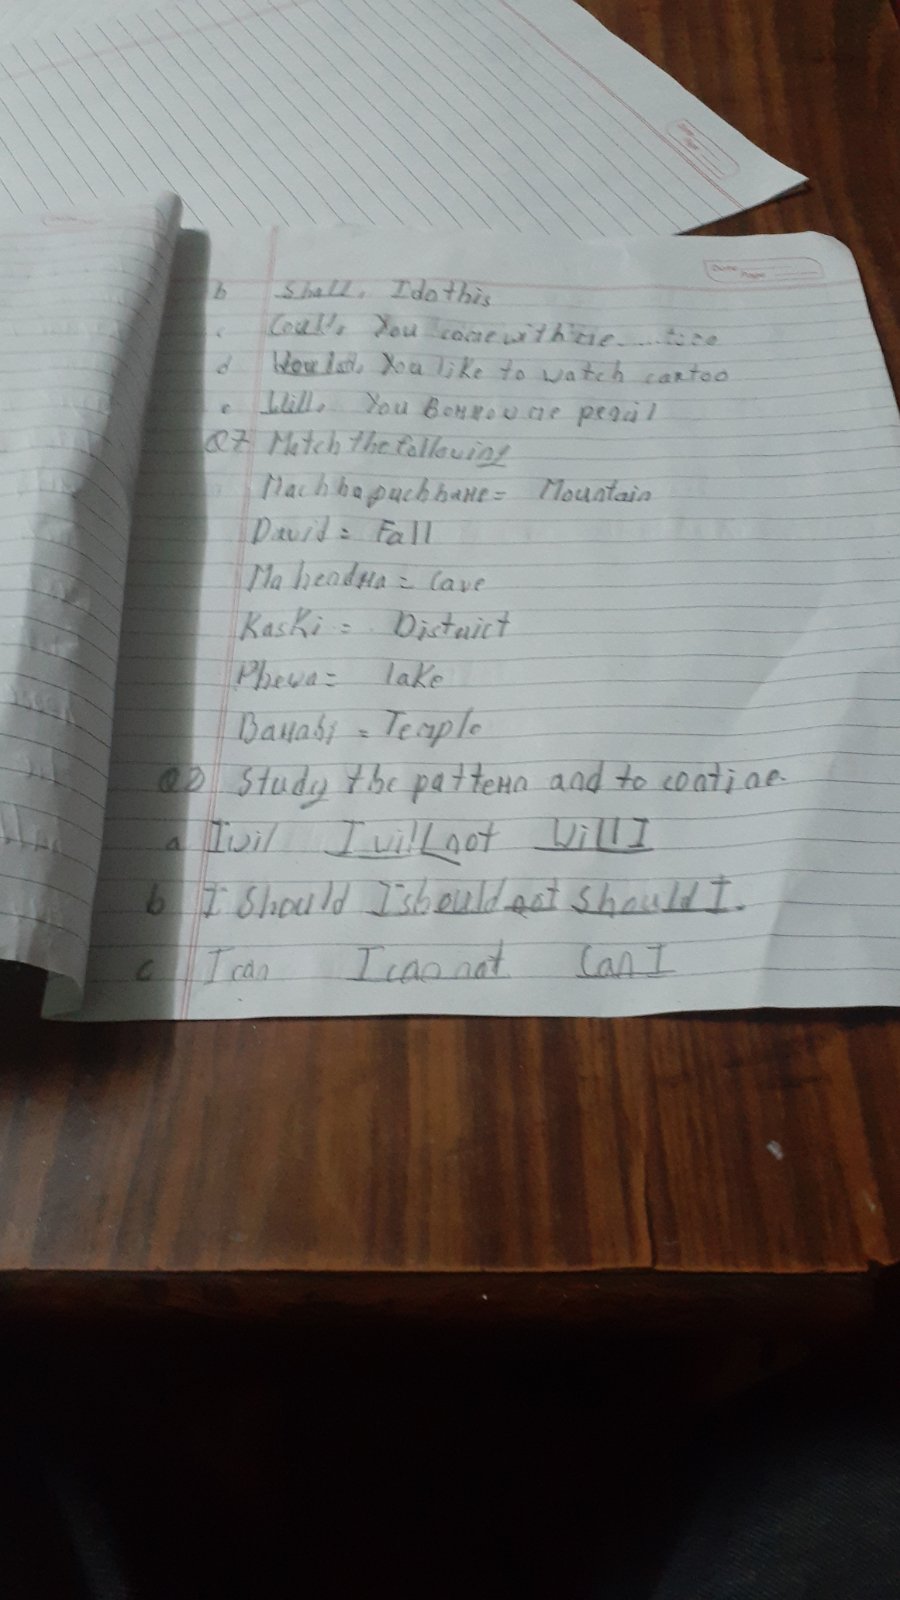 Date
Page
b Shall, I do this
c Could, You come with me
d Would, You like to watch cartoo
e Will, You Borrow me
Q7 Match the following
Machhapuchhare = Mountain
David = Fall
Mahendra = Cave
Kaski = District
Phewa = lake
Barahi = Temple
Study the pattern and to contine.
a I wil I will not Will I
b I Should I should not Should I.
c I can I can not Can I